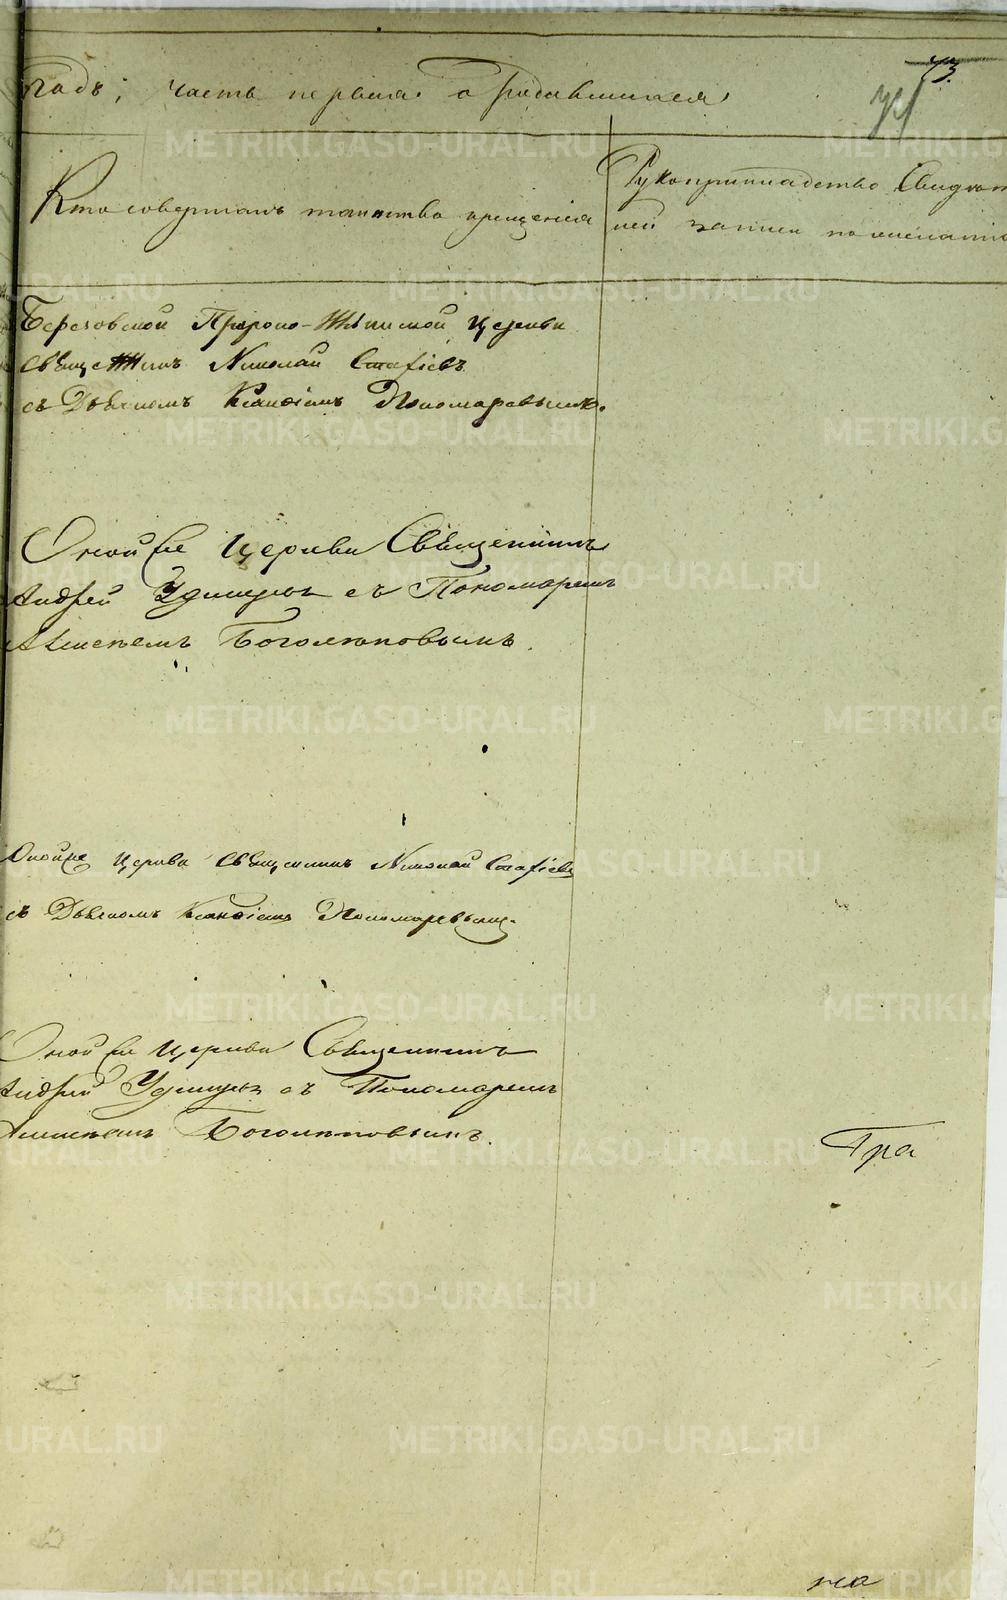 73.
годъ, часть первая о родившихся
Кто совершалъ таинство крещенія
Рукоприкладство Свидѣт
лей записи по желанію
Березовской Пророко-Ильинской Церкви
Священникъ Николай Стафіевъ
съ Дьячкомъ Пономаревымъ.
Оной же Церкви Священникъ
Андрей Удинцевъ съ Пономаремъ
Алексѣемъ Боголѣповымъ.
Оной же Церкви Священникъ Николай Стафіевъ
съ Дьячкомъ Пономаревымъ.
Оной же Церкви Священникъ
Андрей Удинцевъ съ Пономаремъ
Алексѣемъ Боголѣповымъ.
Гра
METRIKI.GASO-URAL.RU